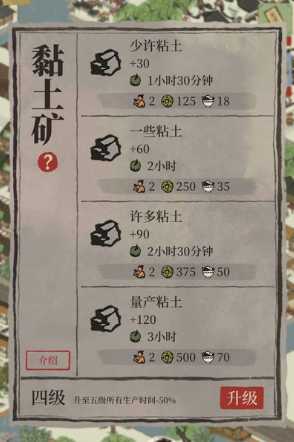 黏土矿
?
少许粘土
+30
1小时30分钟
2 125 18
一些粘土
+60
2小时
2 250 35
许多粘土
+90
2小时30分钟
2 375 50
量产粘土
+120
3小时
2 500 70
介绍
四级 升至五级所有生产时间-50% 升级